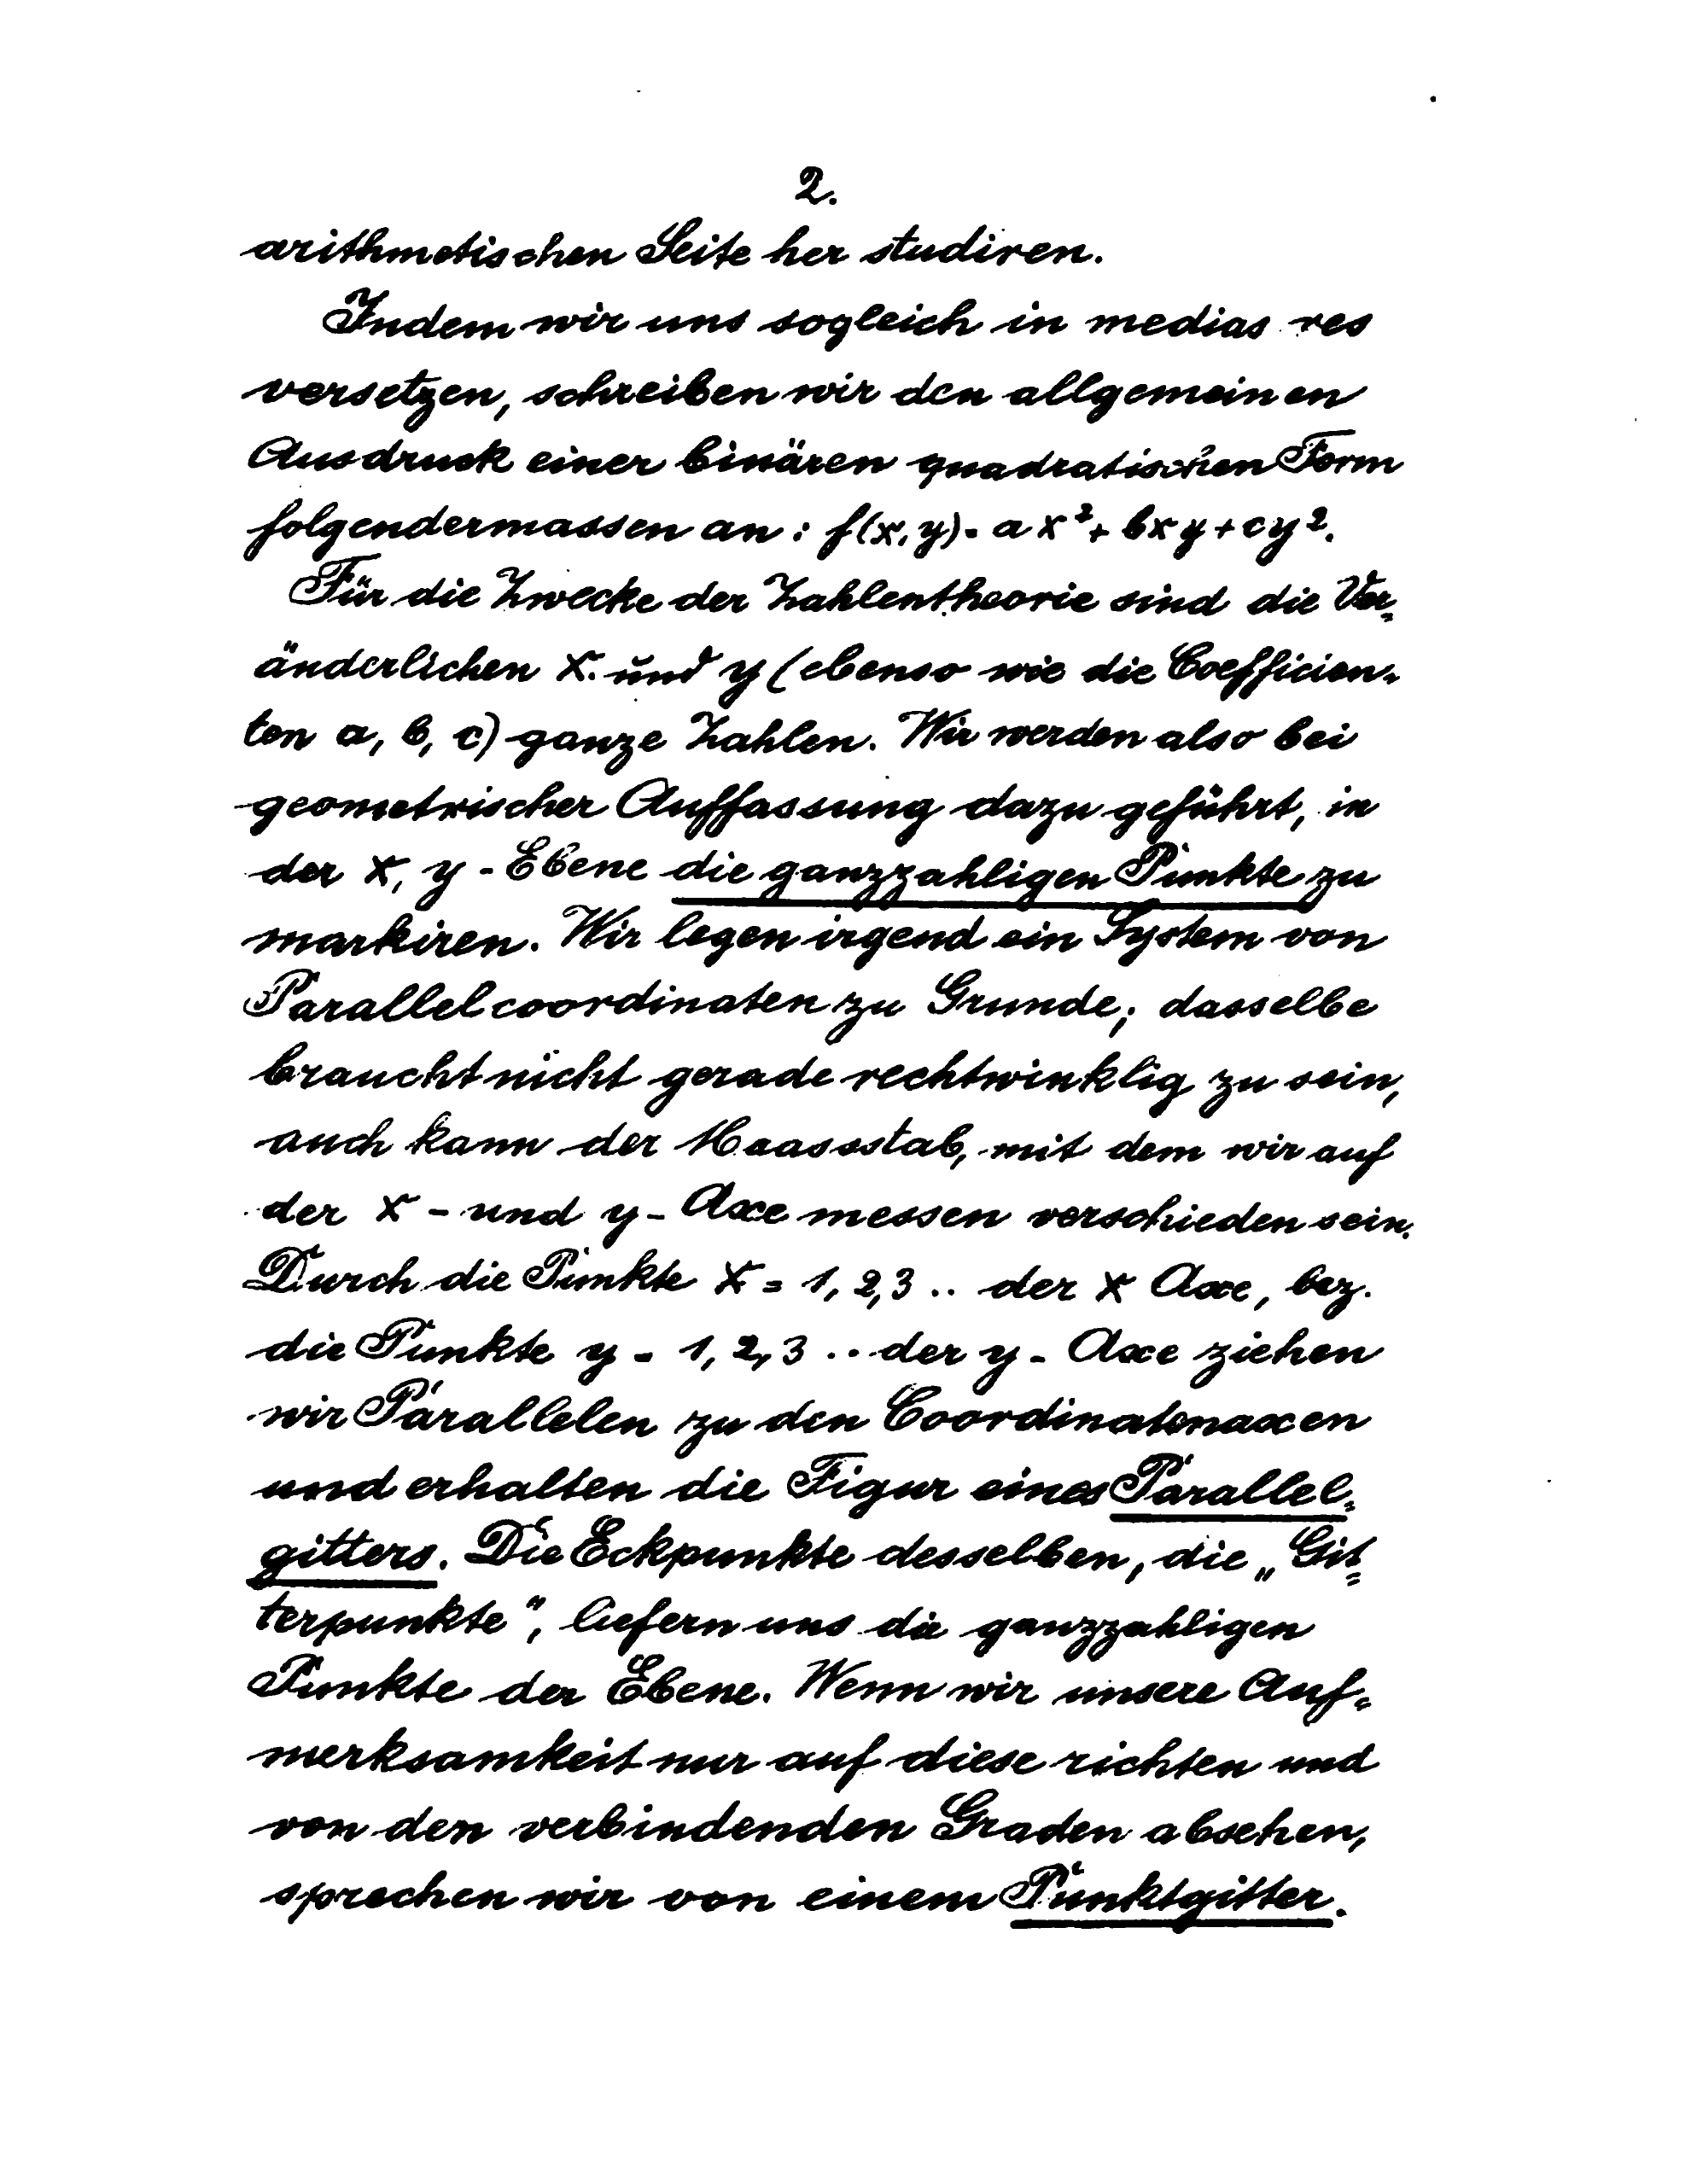 2.
arithmetischen Seite her studiren.
Indem wir uns sogleich in medias res
versetzen, schreiben wir den allgemeinen
Ausdruck einer binären quadratischen Form
folgendermassen an: f(x,y) = ax² + bxy + cy².
Für die Zwecke der Zahlentheorie sind die Ver-
änderlichen x und y (ebenso wie die Coefficien-
ten a, b, c) ganze Zahlen. Wir werden also bei
geometrischer Auffassung dazu geführt, in
der x, y - Ebene die ganzzahligen Punkte zu
markiren. Wir legen irgend ein System von
Parallelcoordinaten zu Grunde; dasselbe
braucht nicht gerade rechtwinklig zu sein,
auch kann der Maassstab, mit dem wir auf
der x - und y - Axe messen verschieden sein.
Durch die Punkte x = 1, 2, 3 .. der x Axe, bez.
die Punkte y = 1, 2, 3 .. der y - Axe ziehen
wir Parallelen zu den Coordinatenaxen
und erhalten die Figur eines Parallel-
gitters. Die Eckpunkte desselben, die „Git-
terpunkte", liefern uns die ganzzahligen
Punkte der Ebene. Wenn wir unsere Auf-
merksamkeit nur auf diese richten und
von den verbindenden Graden absehen,
sprechen wir von einem Punktgitter.